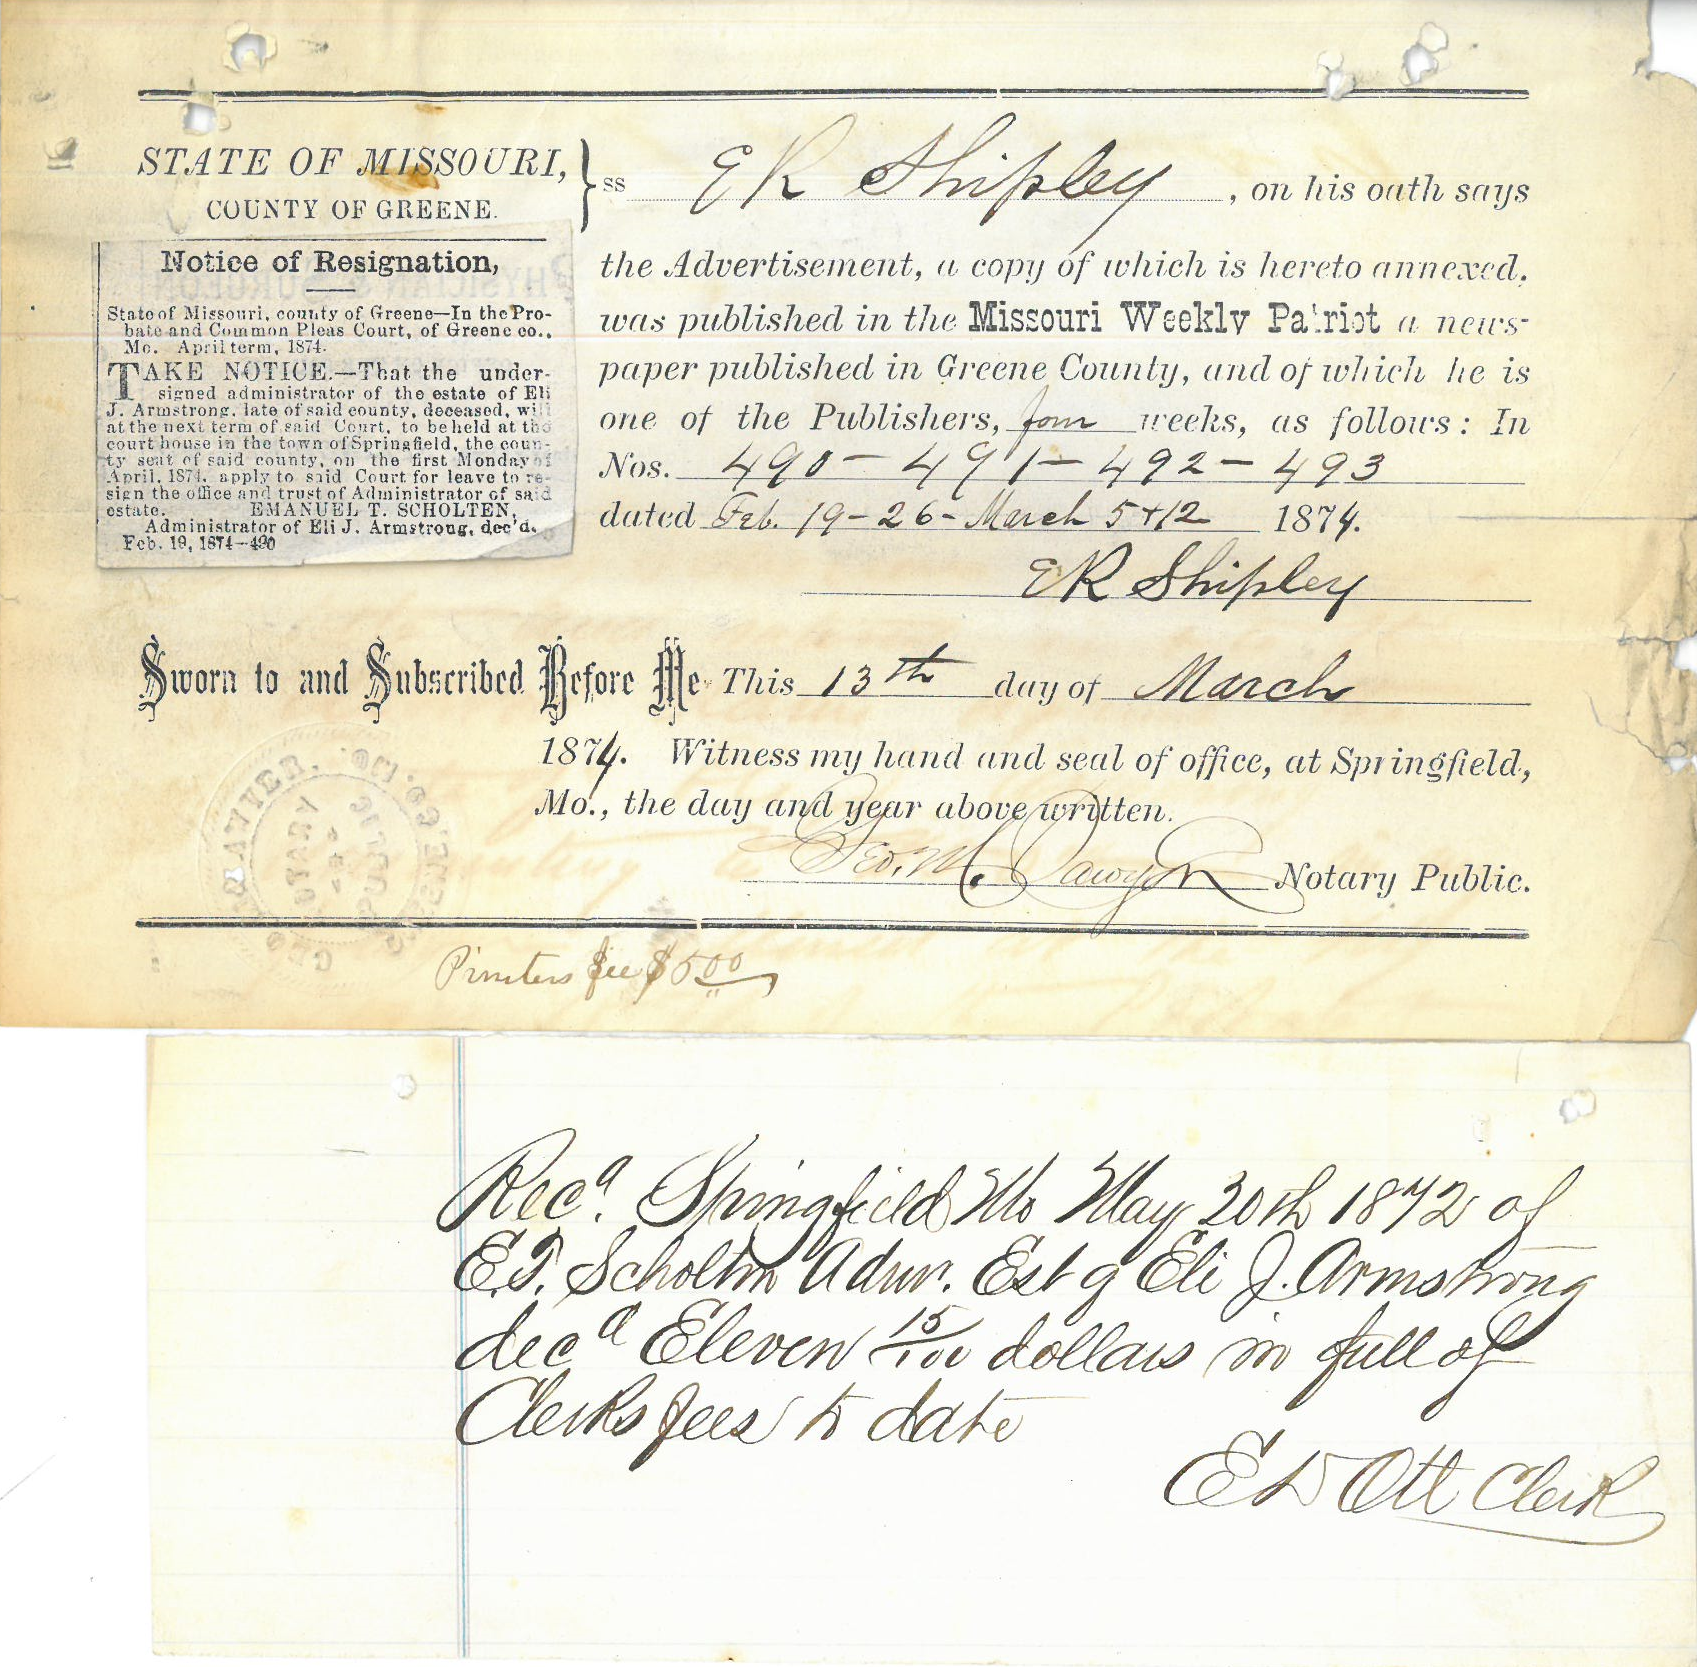 STATE OF MISSOURI,
COUNTY OF GREENE.
ss E R Shipley, on his oath says
the Advertisement, a copy of which is hereto annexed,
was published in the Missouri Weekly Patriot a news-
paper published in Greene County, and of which he is
one of the Publishers, four weeks, as follows: In
Nos. 490 - 491 - 492 - 493
dated Feb. 19 - 26 - March 5 + 12 1874.
E R Shipley
Notice of Resignation,
State of Missouri, county of Greene—In the Pro-
bate and Common Pleas Court, of Greene co.,
Mo. April term, 1874.
TAKE NOTICE.—That the under-
signed administrator of the estate of Eli
J. Armstrong, late of said county, deceased, will
at the next term of said Court, to be held at the
court house in the town of Springfield, the coun-
ty seat of said county, on the first Monday of
April, 1874, apply to said Court for leave to re-
sign the office and trust of Administrator of said
estate. EMANUEL T. SCHOLTEN,
Administrator of Eli J. Armstrong, dec'd.
Feb. 19, 1874—490
Sworn to and Subscribed Before Me This 13th day of March
1874. Witness my hand and seal of office, at Springfield,
Mo., the day and year above written.
Geo. M. Sawyer Notary Public.
NOTARY PUBLIC
Printers fee $5.00
Recd. Springfield Mo May 20th 1872 of
E.T. Scholten Admr. Est of Eli J. Armstrong
decd Eleven 15/100 dollars in full of
Clerks fees to date
E D Ott Clerk